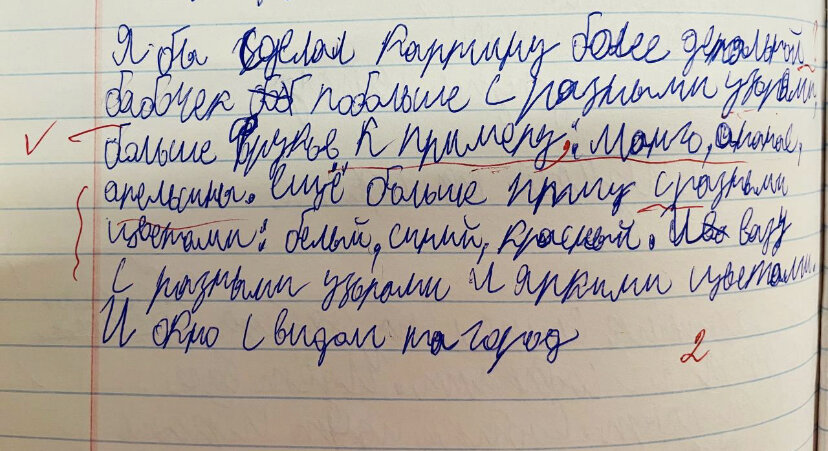 Я бы сделал картину более детальной:
бабочек побольше с разными узорами,
больше фруков, к примеру: манго, ананас,
апельсины. Ещё больше птиц с разными
цветами: белый, синий, красный. И вазу
с разными узорами и яркими цветами.
И окно с видом на город
2